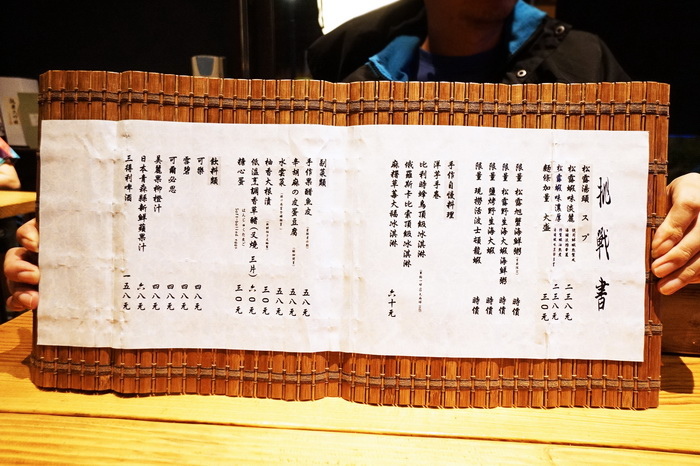 挑戰書
松露湯頭 スープ
松露蝦味淡麗 二三八元
松露蝦味濃厚 二三八元
麵條加量 大盛 三〇元
限量 松露旭蟹海鮮粥 時價
限量 松露野生海大蝦海鮮粥 時價
限量 鹽烤野生海大蝦 時價
限量 現撈活波士頓龍蝦 時價
手作自慢料理
洋芋手卷
比利時蜂鳥頂級冰淇淋
俄羅斯卡比索頂級冰淇淋
麻糬草莓大福冰淇淋 六十元
副菜類
手作果醋魚皮 五八元
辛胡麻の皮蛋豆腐 五八元
水雲菜 五八元
柚香大根漬 三〇元
低溫烹調香草豬(叉燒 三片) 六〇元
糖心蛋 三〇元
飲料類
可樂 四八元
雪碧 四八元
可爾必思 四八元
美麗果柳橙汁 四八元
日本青森縣新鮮蘋果汁 六八元
三得利啤酒 一五八元